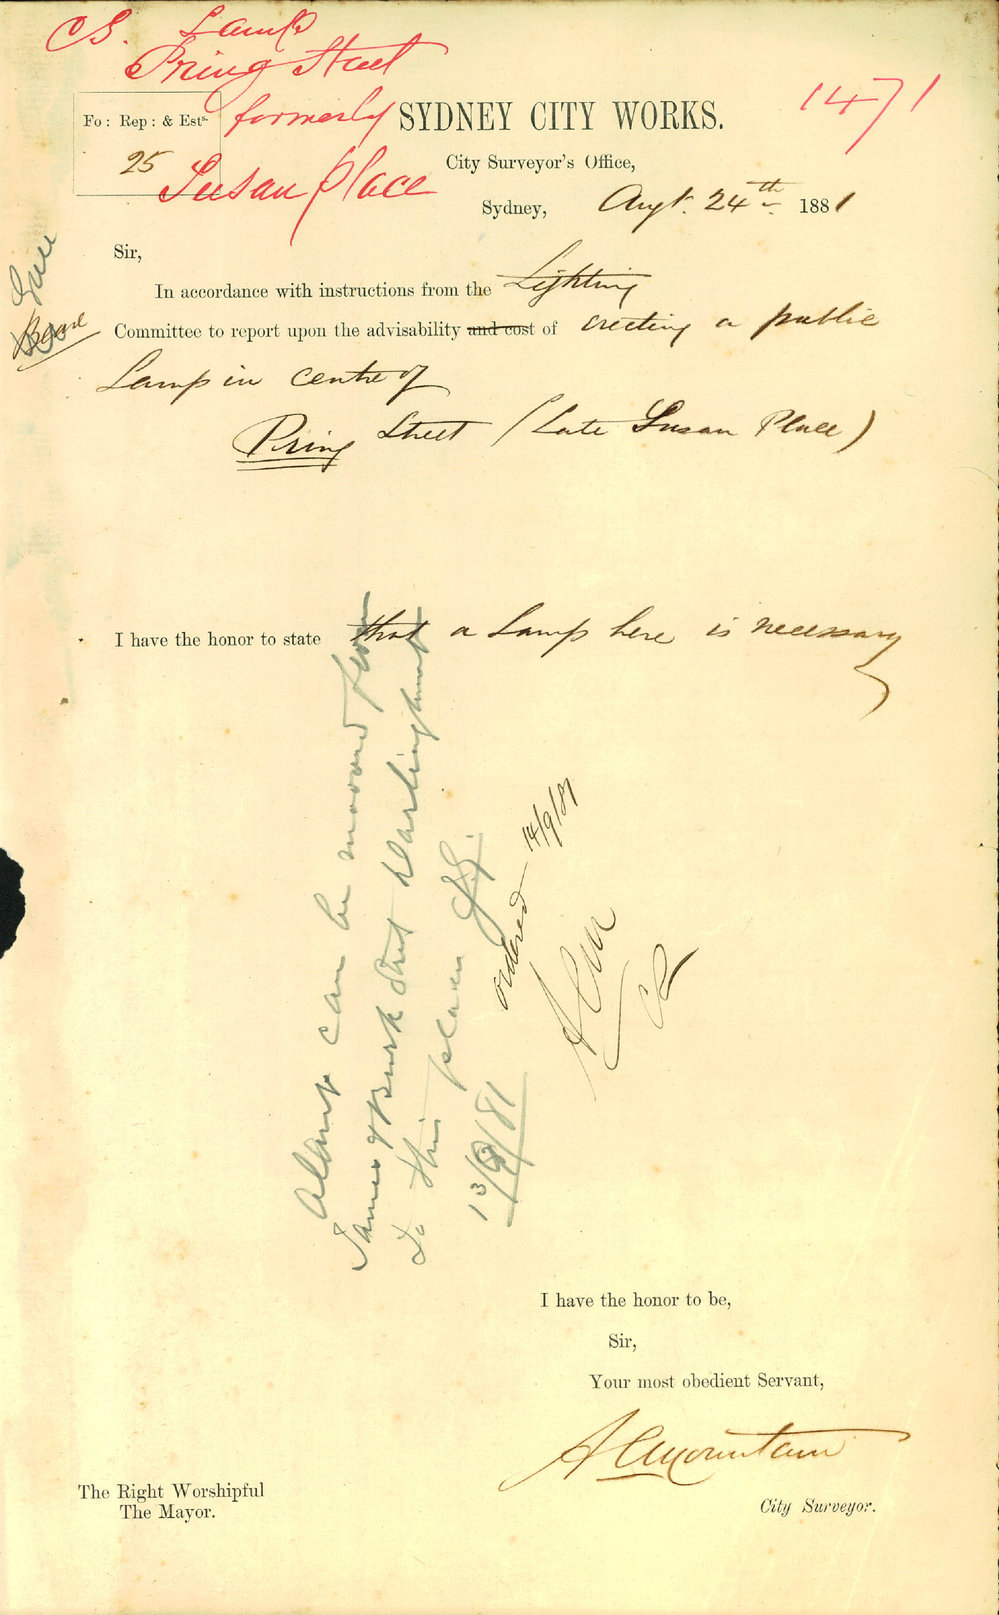 CS. Lamp
Pring Street
formerly
Susan place
1471
Fo: Rep: & Ests.
25
SYDNEY CITY WORKS.
City Surveyor's Office,
Sydney, Augt. 24th 1881
Sir,
In accordance with instructions from the Lighting
Committee to report upon the advisability and cost of erecting a public
Lamp in centre of
Pring Street (late Susan Place)
I have the honor to state that a Lamp here is necessary
A lamp can be moved from
James & Burk Street Darlinghurst
to this place
13/9/81
ordered 14/9/81
ACM
CS
I have the honor to be,
Sir,
Your most obedient Servant,
A C Mountain
City Surveyor.
The Right Worshipful
The Mayor.